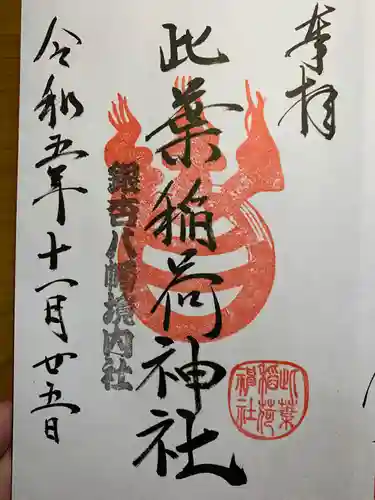 奉拝
此葉稲荷神社
鎮守八幡境内社
令和五年十一月廿五日
此葉
稲荷
神社